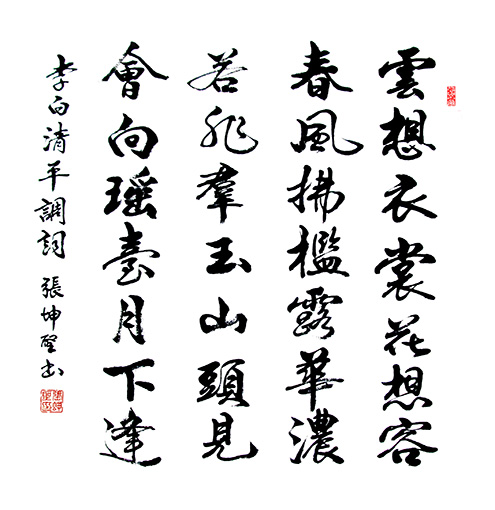 雲想衣裳花想容
春風拂檻露華濃
若非羣玉山頭見
會向瑶臺月下逢
李白清平調詞 張坤 书